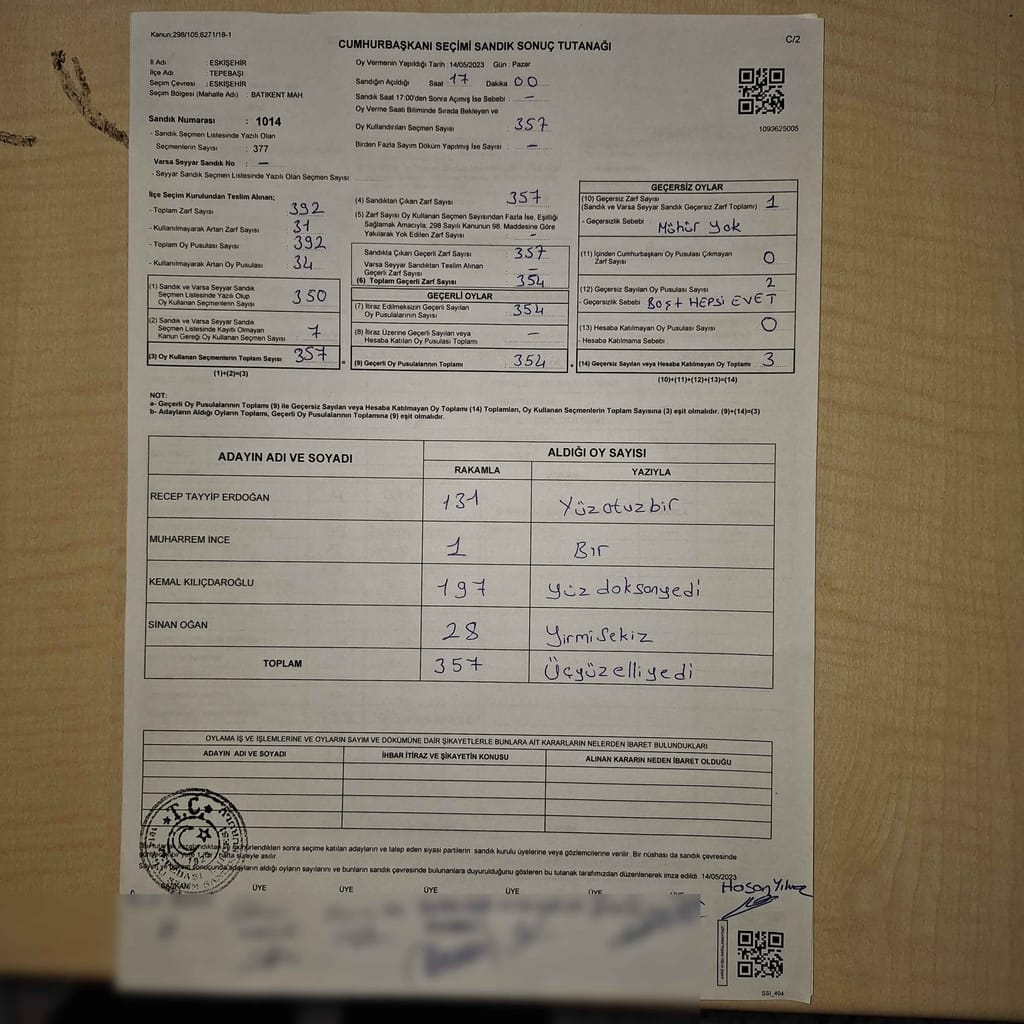 Kanun,298/105,6271/18-1
C/2
CUMHURBAŞKANI SEÇİMİ SANDIK SONUÇ TUTANAĞI
İl Adı : ESKİŞEHİR
İlçe Adı : TEPEBAŞI
Seçim Çevresi : ESKİŞEHİR
Seçim Bölgesi (Mahalle Adı) : BATIKENT MAH.
Sandık Numarası : 1014
- Sandık Seçmen Listesinde Yazılı Olan
Seçmenlerin Sayısı : 377
Varsa Seyyar Sandık No : —
- Seyyar Sandık Seçmen Listesinde Yazılı Olan Seçmen Sayısı:
Oy Vermenin Yapıldığı Tarih : 14/05/2023 Gün : Pazar
Sandığın Açıldığı Saat 17 Dakika 00
Sandık Saat 17:00'den Sonra Açımış İse Sebebi : —
Oy Verme Saati Bitiminde Sırada Bekleyen ve
Oy Kullandırılan Seçmen Sayısı : 357
Birden Fazla Sayım Döküm Yapılmış İse Sayısı : —
1093625005
İlçe Seçim Kurulundan Teslim Alınan;
- Toplam Zarf Sayısı : 392
- Kullanılmayarak Artan Zarf Sayısı : 31
- Toplam Oy Pusulası Sayısı : 392
- Kullanılmayarak Artan Oy Pusulası : 34
(1) Sandık ve Varsa Seyyar Sandık
Seçmen Listesinde Yazılı Olup
Oy Kullanan Seçmenlerin Sayısı : 350
(2) Sandık ve Varsa Seyyar Sandık
Seçmen Listesinde Kayıtlı Olmayan
Kanun Gereği Oy Kullanan Seçmen Sayısı : 7
(3) Oy Kullanan Seçmenlerin Toplam Sayısı : 357
(1)+(2)=(3)
(4) Sandıktan Çıkan Zarf Sayısı : 357
(5) Zarf Sayısı Oy Kullanan Seçmen Sayısından Fazla İse, Eşitliği
Sağlamak Amacıyla, 298 Sayılı Kanunun 98. Maddesine Göre
Yakılarak Yok Edilen Zarf Sayısı : —
Sandıkta Çıkan Geçerli Zarf Sayısı : 357
Varsa Seyyar Sandıktan Teslim Alınan
Geçerli Zarf Sayısı : —
(6) Toplam Geçerli Zarf Sayısı : 354
GEÇERLİ OYLAR
(7) İtiraz Edilmeksizin Geçerli Sayılan
Oy Pusulalarının Sayısı : 354
(8) İtiraz Üzerine Geçerli Sayılan veya
Hesaba Katılan Oy Pusulası Toplamı : —
= (9) Geçerli Oy Pusulalarının Toplamı : 354
GEÇERSİZ OYLAR
(10) Geçersiz Zarf Sayısı : 1
(Sandık ve Varsa Seyyar Sandık Geçersiz Zarf Toplamı)
- Geçersizlik Sebebi : Mühür Yok
(11) İçinden Cumhurbaşkanı Oy Pusulası Çıkmayan
Zarf Sayısı : 0
(12) Geçersiz Sayılan Oy Pusulası Sayısı : 2
- Geçersizlik Sebebi : BOŞ+ HEPSİ EVET
(13) Hesaba Katılmayan Oy Pusulası Sayısı : 0
- Hesaba Katılmama Sebebi :
(14) Geçersiz Sayılan veya Hesaba Katılmayan Oy Toplamı : 3
(10)+(11)+(12)+(13)=(14)
NOT:
a- Geçerli Oy Pusulalarının Toplamı (9) ile Geçersiz Sayılan veya Hesaba Katılmayan Oy Toplamı (14) Toplamları, Oy Kullanan Seçmenlerin Toplam Sayısına (3) eşit olmalıdır. (9)+(14)=(3)
b- Adayların Aldığı Oyların Toplamı, Geçerli Oy Pusulalarının Toplamına (9) eşit olmalıdır.
ADAYIN ADI VE SOYADI
ALDIĞI OY SAYISI
RAKAMLA YAZIYLA
RECEP TAYYİP ERDOĞAN 131 Yüzotuzbir
MUHARREM İNCE 1 Bir
KEMAL KILIÇDAROĞLU 197 yüz doksanyedi
SİNAN OĞAN 28 Yirmisekiz
TOPLAM 357 Üçyüzelliyedi
OYLAMA İŞ VE İŞLEMLERİNE VE OYLARIN SAYIM VE DÖKÜMÜNE DAİR ŞİKAYETLERLE BUNLARA AİT KARARLARIN NELERDEN İBARET BULUNDUKLARI
ADAYIN ADI VE SOYADI İHBAR İTİRAZ VE ŞİKAYETİN KONUSU ALINAN KARARIN NEDEN İBARET OLDUĞU
T.C.
mühürlendikten sonra seçime katılan adayların ve talep eden siyasi partilerin sandık kurulu üyelerine veya gözlemcilerine verilir. Bir nüshası da sandık çevresinde
hafta süreyle asılır.
sonucunda adayların aldığı oyların sayılarını ve bunların sandık çevresinde bulunanlara duyurulduğunu gösteren bu tutanak tarafımızdan düzenlenerek imza edildi. 14/05/2023
ÜYE ÜYE ÜYE ÜYE ÜYE
Hasan Yılmaz
SGI_404